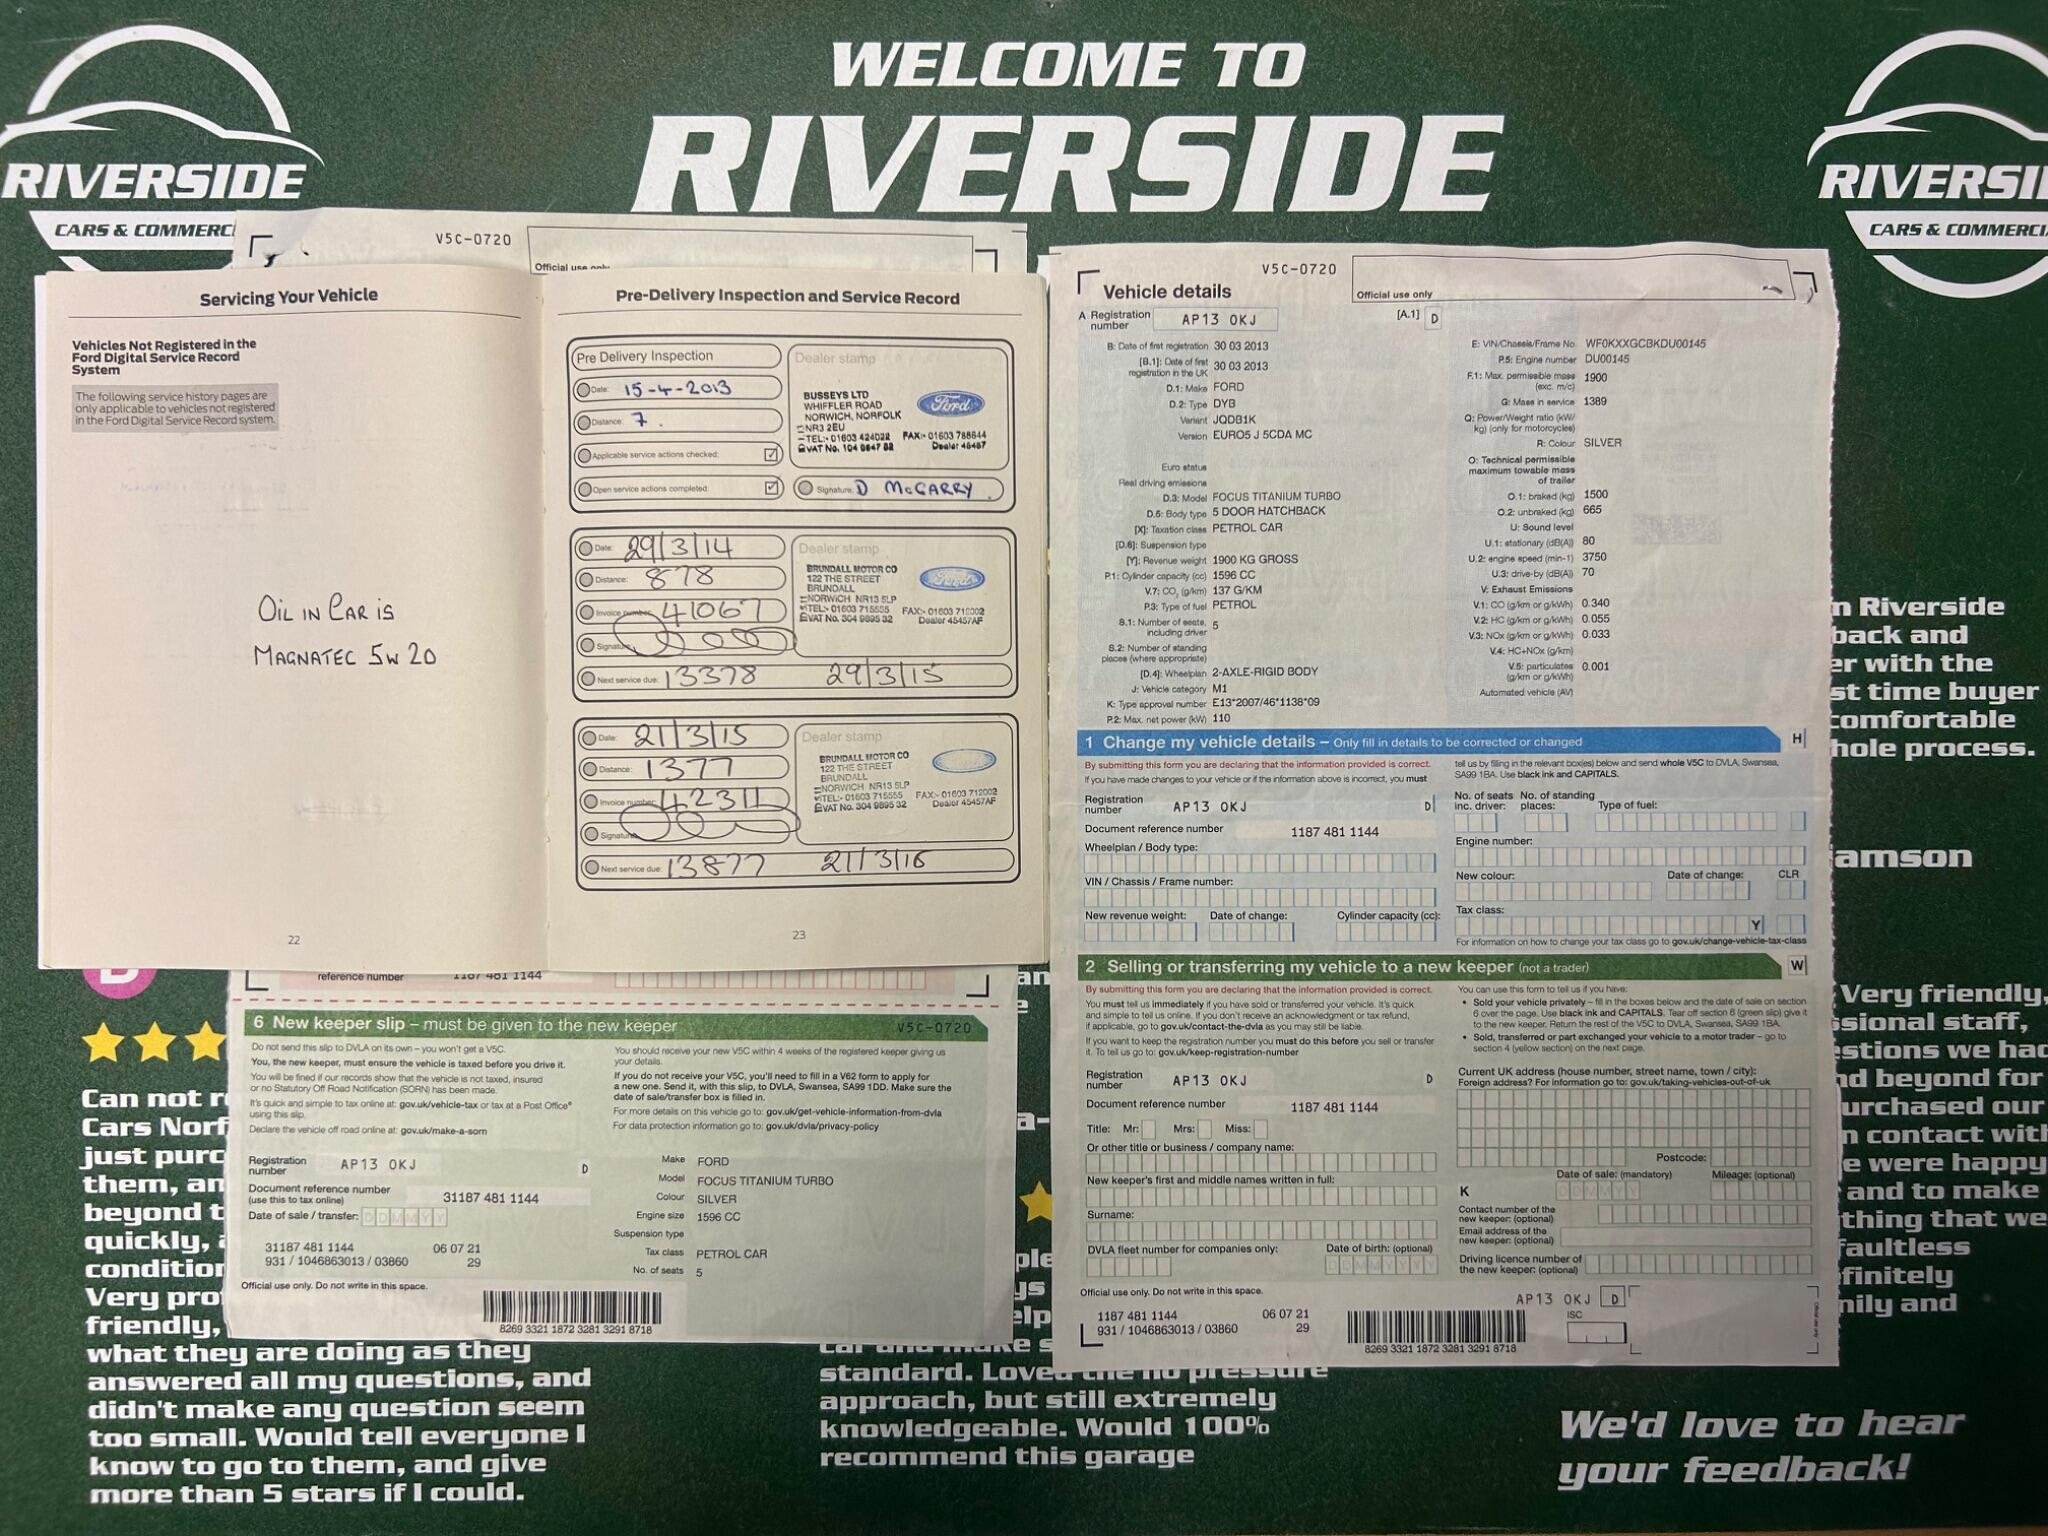 WELCOME TO
RIVERSIDE
RIVERSIDE
CARS & COMMERC
RIVERSI
CARS & COMMERCIA
V5C-0720
Official use only
Servicing Your Vehicle
Vehicles Not Registered in the
Ford Digital Service Record
System
The following service history pages are
only applicable to vehicles not registered
in the Ford Digital Service Record system.
OIL IN CAR IS
MAGNATEC 5W20
22
Pre-Delivery Inspection and Service Record
Pre Delivery Inspection
Date: 15-4-2013
Distance: 7.
Applicable service actions checked:
Open service actions completed:
Dealer stamp
BUSSEYS LTD
WHIFFLER ROAD
NORWICH, NORFOLK
NR3 2EU
TEL:- 01603 424022 FAX:- 01603 788644
VAT No. 104 0647 82 Dealer 46487
Ford
Signature: D McGARRY.
Date: 29/3/14
Distance: 878
Invoice number: 41067
Signature:
Next service due: 13378 29/3/15
Dealer stamp
BRUNDALL MOTOR CO
122 THE STREET
BRUNDALL
NORWICH NR13 5LP
TEL:- 01603 715555 FAX:- 01603 712002
VAT No. 304 9895 32 Dealer 45457AF
Ford
Date: 21/3/15
Distance: 1377
Invoice number: 42311
Signature:
Next service due: 13877 21/3/16
Dealer stamp
BRUNDALL MOTOR CO
122 THE STREET
BRUNDALL
NORWICH NR13 5LP
TEL:- 01603 715555 FAX:- 01603 712002
VAT No. 304 9895 32 Dealer 45457AF
23
reference number 1187 481 1144
6 New keeper slip – must be given to the new keeper V5C-0720
Do not send this slip to DVLA on its own – you won't get a V5C.
You, the new keeper, must ensure the vehicle is taxed before you drive it.
You will be fined if our records show that the vehicle is not taxed, insured
or no Statutory Off Road Notification (SORN) has been made.
It's quick and simple to tax online at: gov.uk/vehicle-tax or tax at a Post Office®
using this slip.
Declare the vehicle off road online at: gov.uk/make-a-sorn
You should receive your new V5C within 4 weeks of the registered keeper giving us
your details.
If you do not receive your V5C, you'll need to fill in a V62 form to apply for
a new one. Send it, with this slip, to DVLA, Swansea, SA99 1DD. Make sure the
date of sale/transfer box is filled in.
For more details on this vehicle go to: gov.uk/get-vehicle-information-from-dvla
For data protection information go to: gov.uk/dvla/privacy-policy
Registration number AP13 OKJ D
Document reference number
(use this to tax online) 31187 481 1144
Date of sale / transfer: DDMMYY
31187 481 1144 06 07 21
931 / 1046863013 / 03860 29
Make FORD
Model FOCUS TITANIUM TURBO
Colour SILVER
Engine size 1596 CC
Suspension type
Tax class PETROL CAR
No. of seats 5
Official use only. Do not write in this space.
8269 3321 1872 3281 3291 8718
V5C-0720
Vehicle details
Official use only
A Registration number AP13 OKJ [A.1] D
B: Date of first registration 30 03 2013
[B.1]: Date of first
registration in the UK 30 03 2013
D.1: Make FORD
D.2: Type DYB
Variant JQDB1K
Version EURO5 J 5CDA MC
Euro status
Real driving emissions
D.3: Model FOCUS TITANIUM TURBO
D.5: Body type 5 DOOR HATCHBACK
[X]: Taxation class PETROL CAR
[D.6]: Suspension type
[Y]: Revenue weight 1900 KG GROSS
P.1: Cylinder capacity (cc) 1596 CC
V.7: CO2 (g/km) 137 G/KM
P.3: Type of fuel PETROL
S.1: Number of seats,
including driver 5
S.2: Number of standing
places (where appropriate)
[D.4]: Wheelplan 2-AXLE-RIGID BODY
J: Vehicle category M1
K: Type approval number E13*2007/46*1138*09
P.2: Max. net power (kW) 110
E: VIN/Chassis/Frame No WF0KXXGCBKDU00145
P.5: Engine number DU00145
F.1: Max. permissible mass
(exc. m/c) 1900
G: Mass in service 1389
Q: Power/Weight ratio (kW/
kg) (only for motorcycles)
R: Colour SILVER
O: Technical permissible
maximum towable mass
of trailer
O.1: braked (kg) 1500
O.2: unbraked (kg) 665
U: Sound level
U.1: stationary (dB(A)) 80
U.2: engine speed (min-1) 3750
U.3: drive-by (dB(A)) 70
V: Exhaust Emissions
V.1: CO (g/km or g/kWh) 0.340
V.2: HC (g/km or g/kWh) 0.055
V.3: NOx (g/km or g/kWh) 0.033
V.4: HC+NOx (g/km)
V.5: particulates
(g/km or g/kWh) 0.001
Automated vehicle (AV)
1 Change my vehicle details – Only fill in details to be corrected or changed H
By submitting this form you are declaring that the information provided is correct.
If you have made changes to your vehicle or if the information above is incorrect, you must
tell us by filling in the relevant box(es) below and send whole V5C to DVLA, Swansea,
SA99 1BA. Use black ink and CAPITALS.
Registration number AP13 OKJ D
Document reference number 1187 481 1144
Wheelplan / Body type:
VIN / Chassis / Frame number:
New revenue weight: Date of change: Cylinder capacity (cc):
No. of seats inc. driver: No. of standing places: Type of fuel:
Engine number:
New colour: Date of change: CLR
Tax class: Y
For information on how to change your tax class go to gov.uk/change-vehicle-tax-class
2 Selling or transferring my vehicle to a new keeper (not a trader) W
By submitting this form you are declaring that the information provided is correct.
You must tell us immediately if you have sold or transferred your vehicle. It's quick
and simple to tell us online. If you don't receive an acknowledgment or tax refund,
if applicable, go to gov.uk/contact-the-dvla as you may still be liable.
If you want to keep the registration number you must do this before you sell or transfer
it. To tell us go to: gov.uk/keep-registration-number
You can use this form to tell us if you have:
• Sold your vehicle privately – fill in the boxes below and the date of sale on section
6 over the page. Use black ink and CAPITALS. Tear off section 6 (green slip) give it
to the new keeper. Return the rest of the V5C to DVLA, Swansea, SA99 1BA.
• Sold, transferred or part exchanged your vehicle to a motor trader – go to
section 4 (yellow section) on the next page.
Registration number AP13 OKJ D
Document reference number 1187 481 1144
Title: Mr: Mrs: Miss:
Or other title or business / company name:
New keeper's first and middle names written in full:
Surname:
DVLA fleet number for companies only: Date of birth: (optional)
DDMMYYYY
Current UK address (house number, street name, town / city):
Foreign address? For information go to: gov.uk/taking-vehicles-out-of-uk
Postcode:
Date of sale: (mandatory) Mileage: (optional)
K DDMMYY
Contact number of the
new keeper: (optional)
Email address of the
new keeper: (optional)
Driving licence number of
the new keeper: (optional)
Official use only. Do not write in this space.
AP13 OKJ D
1187 481 1144 06 07 21
931 / 1046863013 / 03860 29
8269 3321 1872 3281 3291 8718
ISC
Official use only
n Riverside
back and
er with the
st time buyer
comfortable
hole process.
amson
Very friendly,
ssional staff,
estions we had
nd beyond for
urchased our
n contact with
e were happy
and to make
thing that we
faultless
finitely
mily and
Can not r
Cars Norf
just purc
them, an
beyond t
quickly, a
condition
Very pro
friendly,
what they are doing as they
answered all my questions, and
didn't make any question seem
too small. Would tell everyone I
know to go to them, and give
more than 5 stars if I could.
standard. Loved the no pressure
approach, but still extremely
knowledgeable. Would 100%
recommend this garage
We'd love to hear
your feedback!